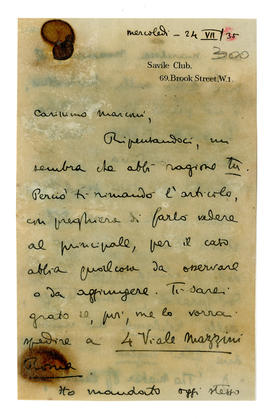 mercoledì - 24 VII 35
300
Savile Club.
69. Brook Street. W.1.
Carissimo Marconi,
Ripensandoci, mi
sembra che abbi ragione tu.
Perciò ti rimando l'articolo,
con preghiera di farlo vedere
al principale, per il caso
abbia qualcosa da osservare
o da aggiungere. Ti sarei
grato se, poi, me lo vorrai
spedire a 4 Viale Mazzini
Roma
Ho mandato oggi stesso